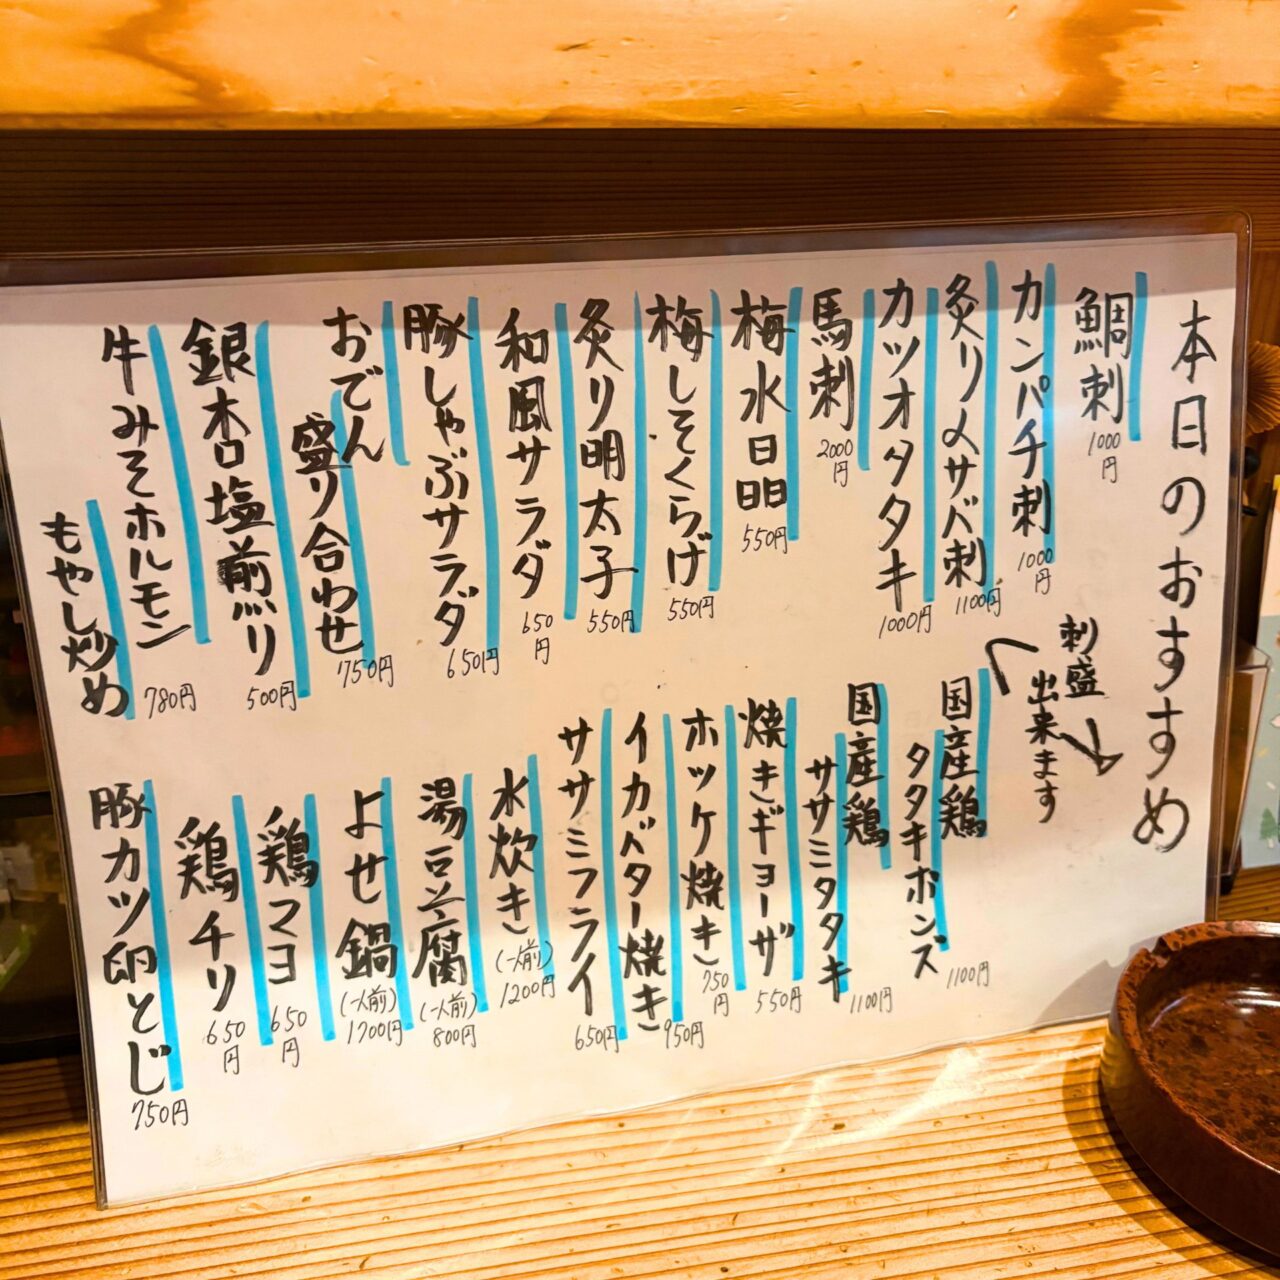 本日のおすすめ
鯛刺 1000円
カンパチ刺 1000円
炙り〆サバ刺 1100円
カツオタタキ 1000円
馬刺 2000円
梅水晶 550円
梅しそくらげ 550円
炙り明太子 550円
和風サラダ 650円
豚しゃぶサラダ 650円
おでん
盛り合わせ 750円
銀杏塩煎り 500円
牛みそホルモン
もやし炒め 780円
刺盛
出来ます
国産鶏
タタキポンズ 1100円
国産鶏
ササミタタキ 1100円
焼きギョーザ 550円
ホッケ焼き 750円
イカバター焼き 950円
ササミフライ 650円
水炊き(一人前) 1200円
湯豆腐(一人前) 800円
よせ鍋(一人前) 1700円
鶏マヨ 650円
鶏チリ 650円
豚カツ卵とじ 750円